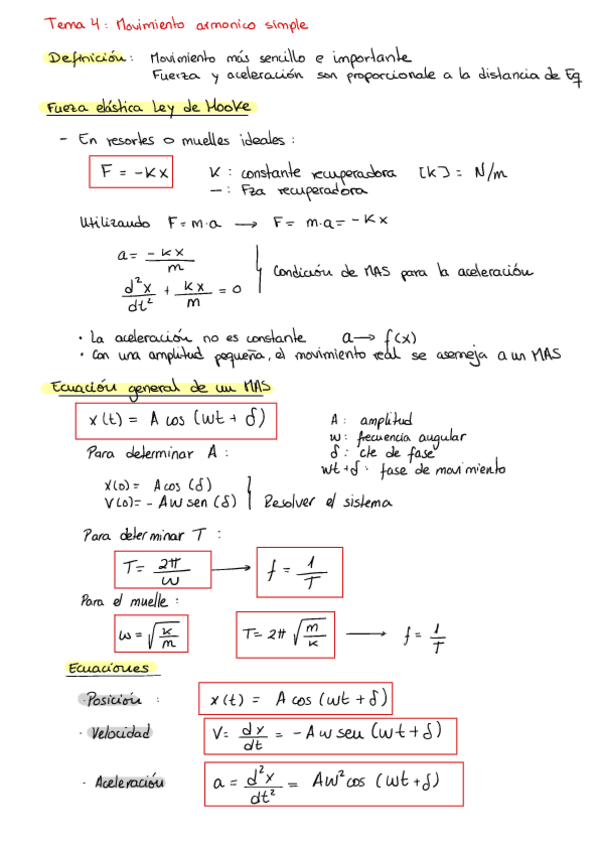 Tema 4: Movimiento armonico simple
Definición: Movimiento más sencillo e importante
Fuerza y aceleración son proporcionale a la distancia de Eq
Fueza elástica Ley de Hooke
- En resortes o muelles ideales:
F = -Kx K: constante recuperadora [K] = N/m
-: Fza recuperadora
Utilizando F = m·a → F = m·a = -Kx
a = -Kx/m
d²x/dt² + Kx/m = 0 Condición de MAS para la aceleración
· La aceleración no es constante a → f(x)
· Con una amplitud pequeña, el movimiento real se asemeja a un MAS
Ecuación general de un MAS
x(t) = A cos (wt + δ) A: amplitud
w: frecuencia angular
Para determinar A: δ: cte de fase
wt+δ: fase de movimiento
X(0) = A cos (δ)
V(0) = - Aw sen (δ) Resolver el sistema
Para determinar T:
T = 2π/w → f = 1/T
Para el muelle:
w = √(K/m) T = 2π √(m/K) → f = 1/T
Ecuaciones
· Posición: x(t) = A cos (wt + δ)
· Velocidad V = dx/dt = - A w sen (wt + δ)
· Aceleración a = d²x/dt² = Aw² cos (wt + δ)